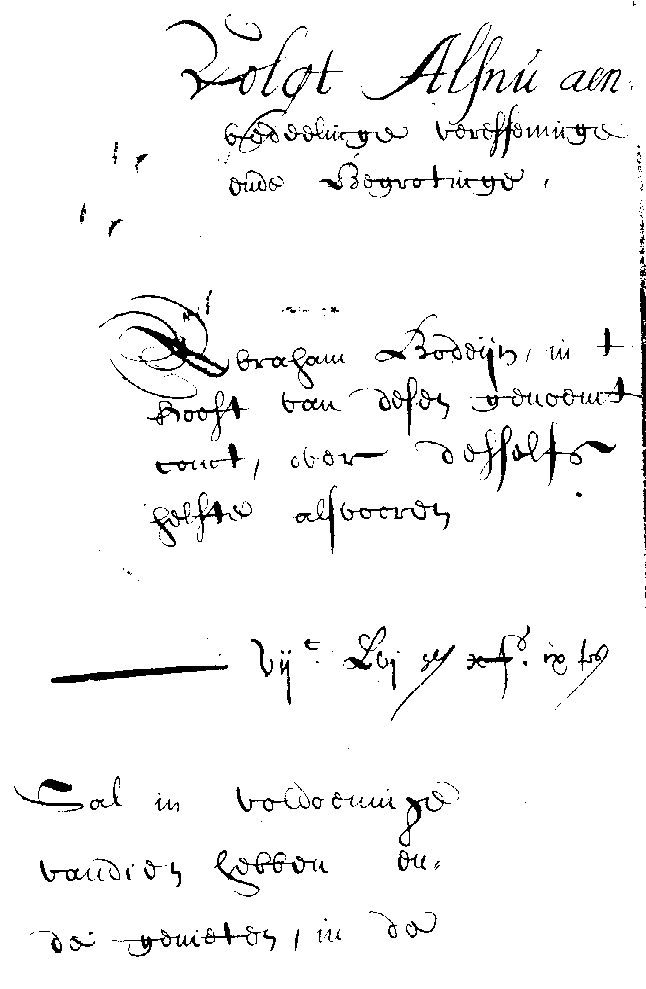 Volgt Alsnu aen
bedeelinge vereffeninge
ende Begrotinge,
Abraham Bodeijn, in t
hooft van desen genoemt
comt, over desselfs
helfte alsvooren
vijc Lvj
Sal in voldoeninge
vandien hebben en„
de genieten, in de